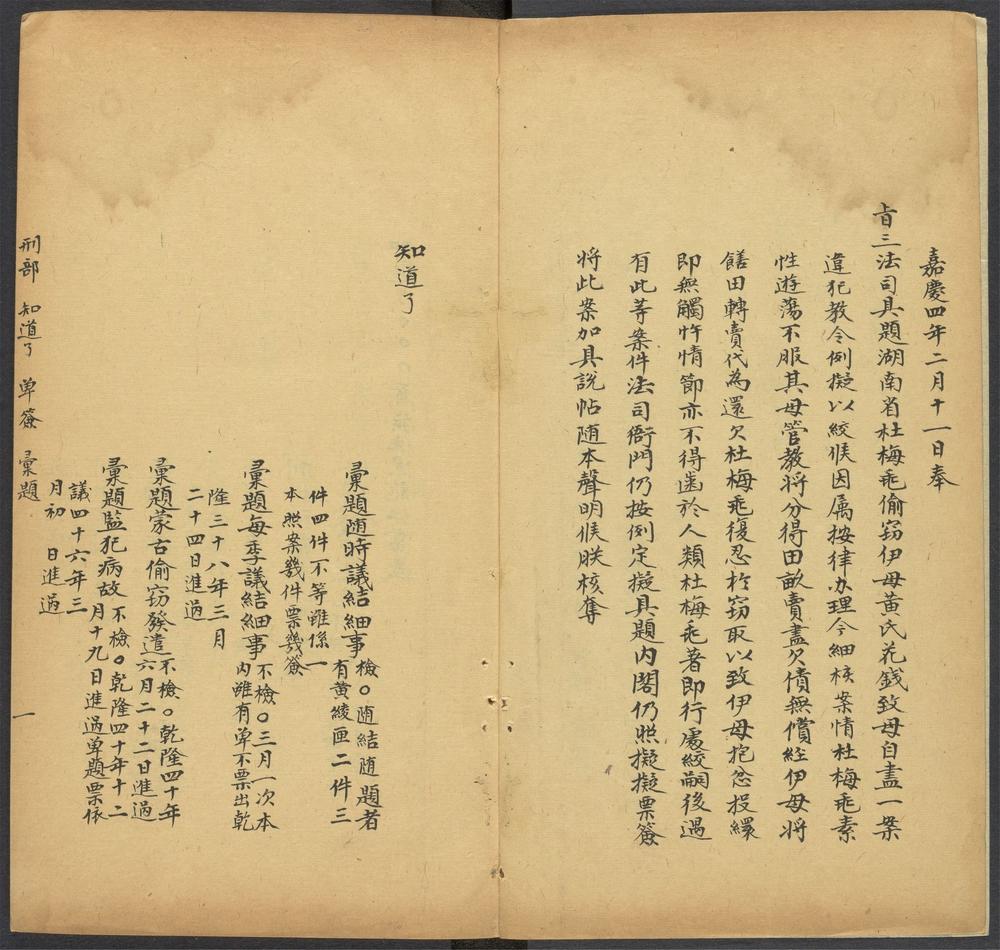 嘉慶四年二月十一日奉
旨三法司具題湖南省杜梅乖偷竊伊母黃氏花錢致母自盡一案
違犯教令例擬以絞候因屬按律办理今細核案情杜梅乖素
性遊蕩不服其母管教將分得田畝賣盡欠債無償經伊母將
饍田轉賣代為還欠杜梅乖復忍於竊取以致伊母抱忿投繯
即無觸忤情節亦不得齒於人類杜梅乖著即行處絞嗣後遇
有此等案件法司衙門仍按例定擬具題內閣仍照擬擬票簽
將此案加具說帖隨本聲明候朕核奪
知道了
彙題隨時議結細事檢○隨結隨題者
有黃綾匣二件三
件四件不等雖係一
本照案幾件票幾簽
彙題每季議結細事不檢○三月一次本
內雖有单不票出乾
隆三十八年三月
二十四日進過
彙題蒙古偷竊發遣不檢○乾隆四十年
六月二十二日進過
彙題監犯病故不檢○乾隆四十年十二
月十九日進過单題票依
議四十六年三
月初 日進過
刑部 知道了 单簽 彙題 一